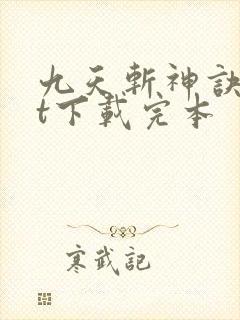 九天斬神訣
t下載完本
寒武記